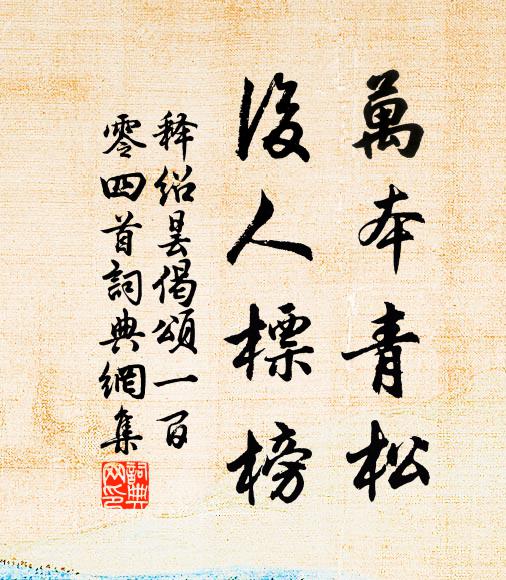 萬本青松
後人標榜
釋紹曇偈頌一百
零四首詞典網集
詞典
网印